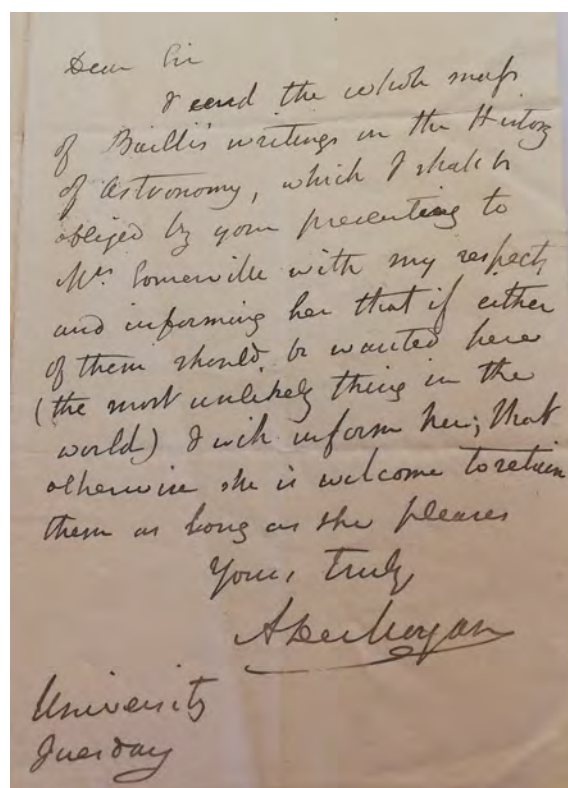 Dear Sir
I send the whole mass
of Bailli's writings on the History
of Astronomy, which I shall be
obliged by your presenting to
Mrs Somerville with my respects
and informing her that if either
of them should be wanted here
(the most unlikely thing in the
world) I will inform her; that
otherwise she is welcome to retain
them as long as she pleases
Yours truly
A De Morgan
University
Tuesday